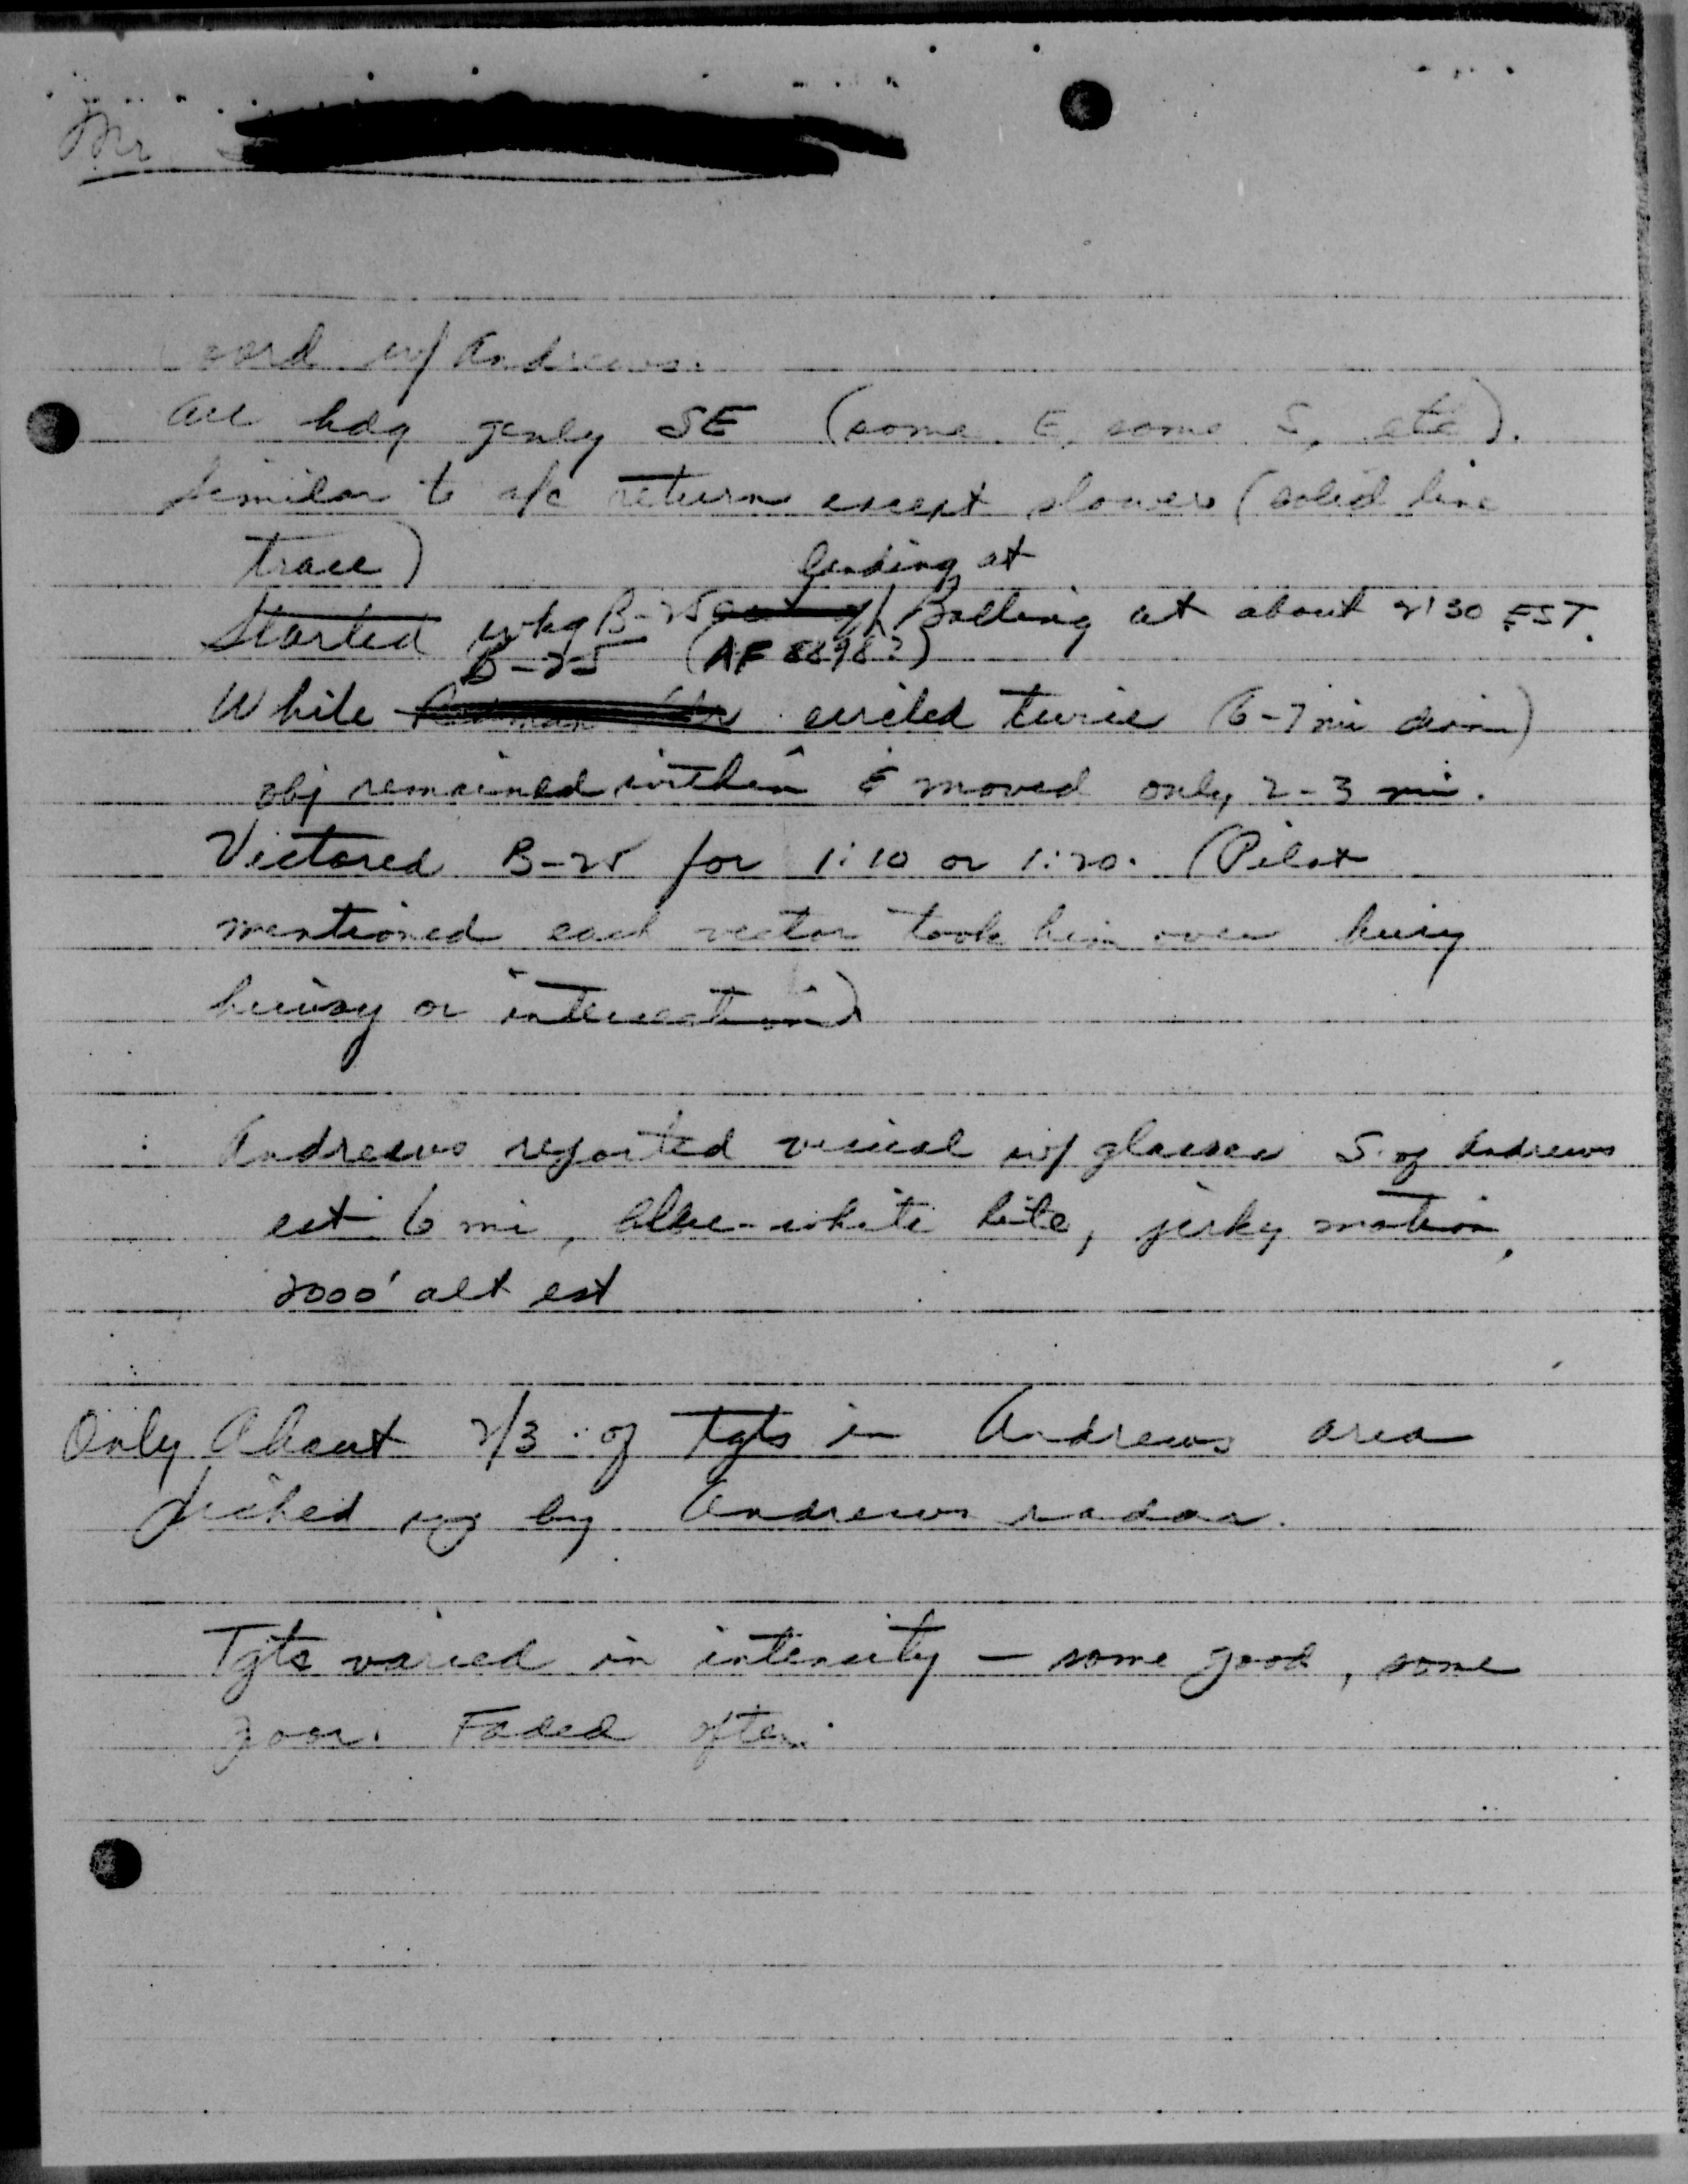 Mr
Coord w/ Andrews.
All hdg genly SE (some E, some S, etc).
Similar to a/c return except slower (solid line
trace)
landing at
Started wkg B-25 out of Bolling at about 2:30 EST.
B-25 (AF 8898?)
While circled twice (6-7 mi diam)
obj remained within & moved only 2-3 mi.
Vectored B-25 for 1:10 or 1:20. (Pilot
mentioned each vector took him over busy
hiway or intersection)
Andrews reported visual w/ glasses S. of Andrews
est 6 mi, blue-white lite, jerky motion,
2000' alt est
Only About 2/3 of tgts in Andrews area
picked up by Andrews radar.
Tgts varied in intensity - some good, some
poor. Faded often.